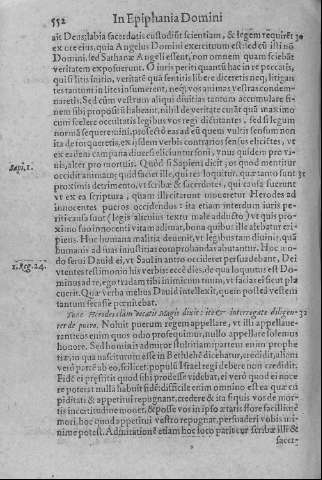 552 In Epiphania Domini
ait Deus, labia sacerdotis custodiũt scientiam, & legem requirẽt 30
ex ore eius, quia Angelus Domini exercituum est: sed cũ isti nõ
Domini, sed Sathanæ Angeli essent, non omnem quam sciebãt
veritatem exposuerunt. O iuris periti quanta hac in re peccatis,
qui si litis initio, veritatẽ quã sentitis libere diceretis neq; litigan
tes tantum in lites insumerent, neq; vos animas vestras condem-
naretis. Sed cũm vestrum aliqui diuitias tantum accumulare fi-
nem sibi propositũ habeant, nihil de veritate curãt quã maximo
cum scelere occultatis legibus vos regi dicitantes, sed si legum
normã sequeremini, profectò eas ad eũ quem vultis sensum non
ita detorqueretis, ex ijsdem verbis contrarios sensus elicītes, vt
ex eadem campana diuersi eliciuntur soni, vnus quidem pro vi-
uis, alter pro mortuis. Quòd si Sapiens dicit; os quod mentitur
Sapi, 1. occidit animam; quid faciet ille, qui rei loquitur, quæ tanto sunt 31
proximis detrimento, vt scribæ & sacerdotes, qui causa fuerunt
vt ex ea scriptura, quam illi citarunt moueretur Herodes ad
innocentes pueros occidendos: ita etiam interdum iuris pe-
riti causa sunt (legis alicuius textu malè adducto) vt quis pro-
ximo suo innocenti vitam adimat, bona quibus ille alebatur eri-
piens. Hoc humana malitia deuenit, vt legibus tam diuinis, quã
humanis ad suas iniustitias comprobandas abutantur. Hoc mo-
do serui Dauid ei, vt Saul in antro occideret persuadebant, Dei
1. Reg. 24. vtentes testimonio his verbis: ecce dies, de qua loquutus est Do-
minus ad te, ego tradam tibi inimicum tuum, vt facias ei sicut pla
cuerit. Quæ verba melius Dauid intellexit, quem posteà vesteni
tantum secasse pœnitebat.
Tunc Herodes clam vocatis Magis dixit: ite & interrogate diligen- 32
ter de puero. Noluit puerum regem appellare, vt illi appellaue-
rant: eos enim quos odio prosequimur, nullo appellare solemus
honore. Sed hominis admiror stultitiam: partem enim prophe
tiæ, in qua nasciturum esse in Bethlehẽ dicebatur, credidit, aliam
verò partẽ ab eo, scilicet, populũ Israel regi debere non credidit.
Fidẽ ei præstitit quod sibi prodesse videbat, ei verò quod inoce
re poterat nulla habuit fidẽ: difficile enim omnino est ea quæ cu
piditati & appetitui repugnant, credere & ita si quis vos de mor-
tis incertitudine monet, & posse vos in ipso ætatis flore facillimè
mori, hoc quod appetitui vestro repugnat, persuaderi vobis mi-
nimè potest. Admiratione etiam hoc loco patiuntur scribæ illi &
sacer-